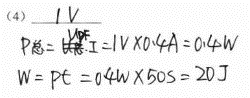 (4) 1V
P总=I=1V×0.4A=0.4W
W=Pt=04W×50S=20J